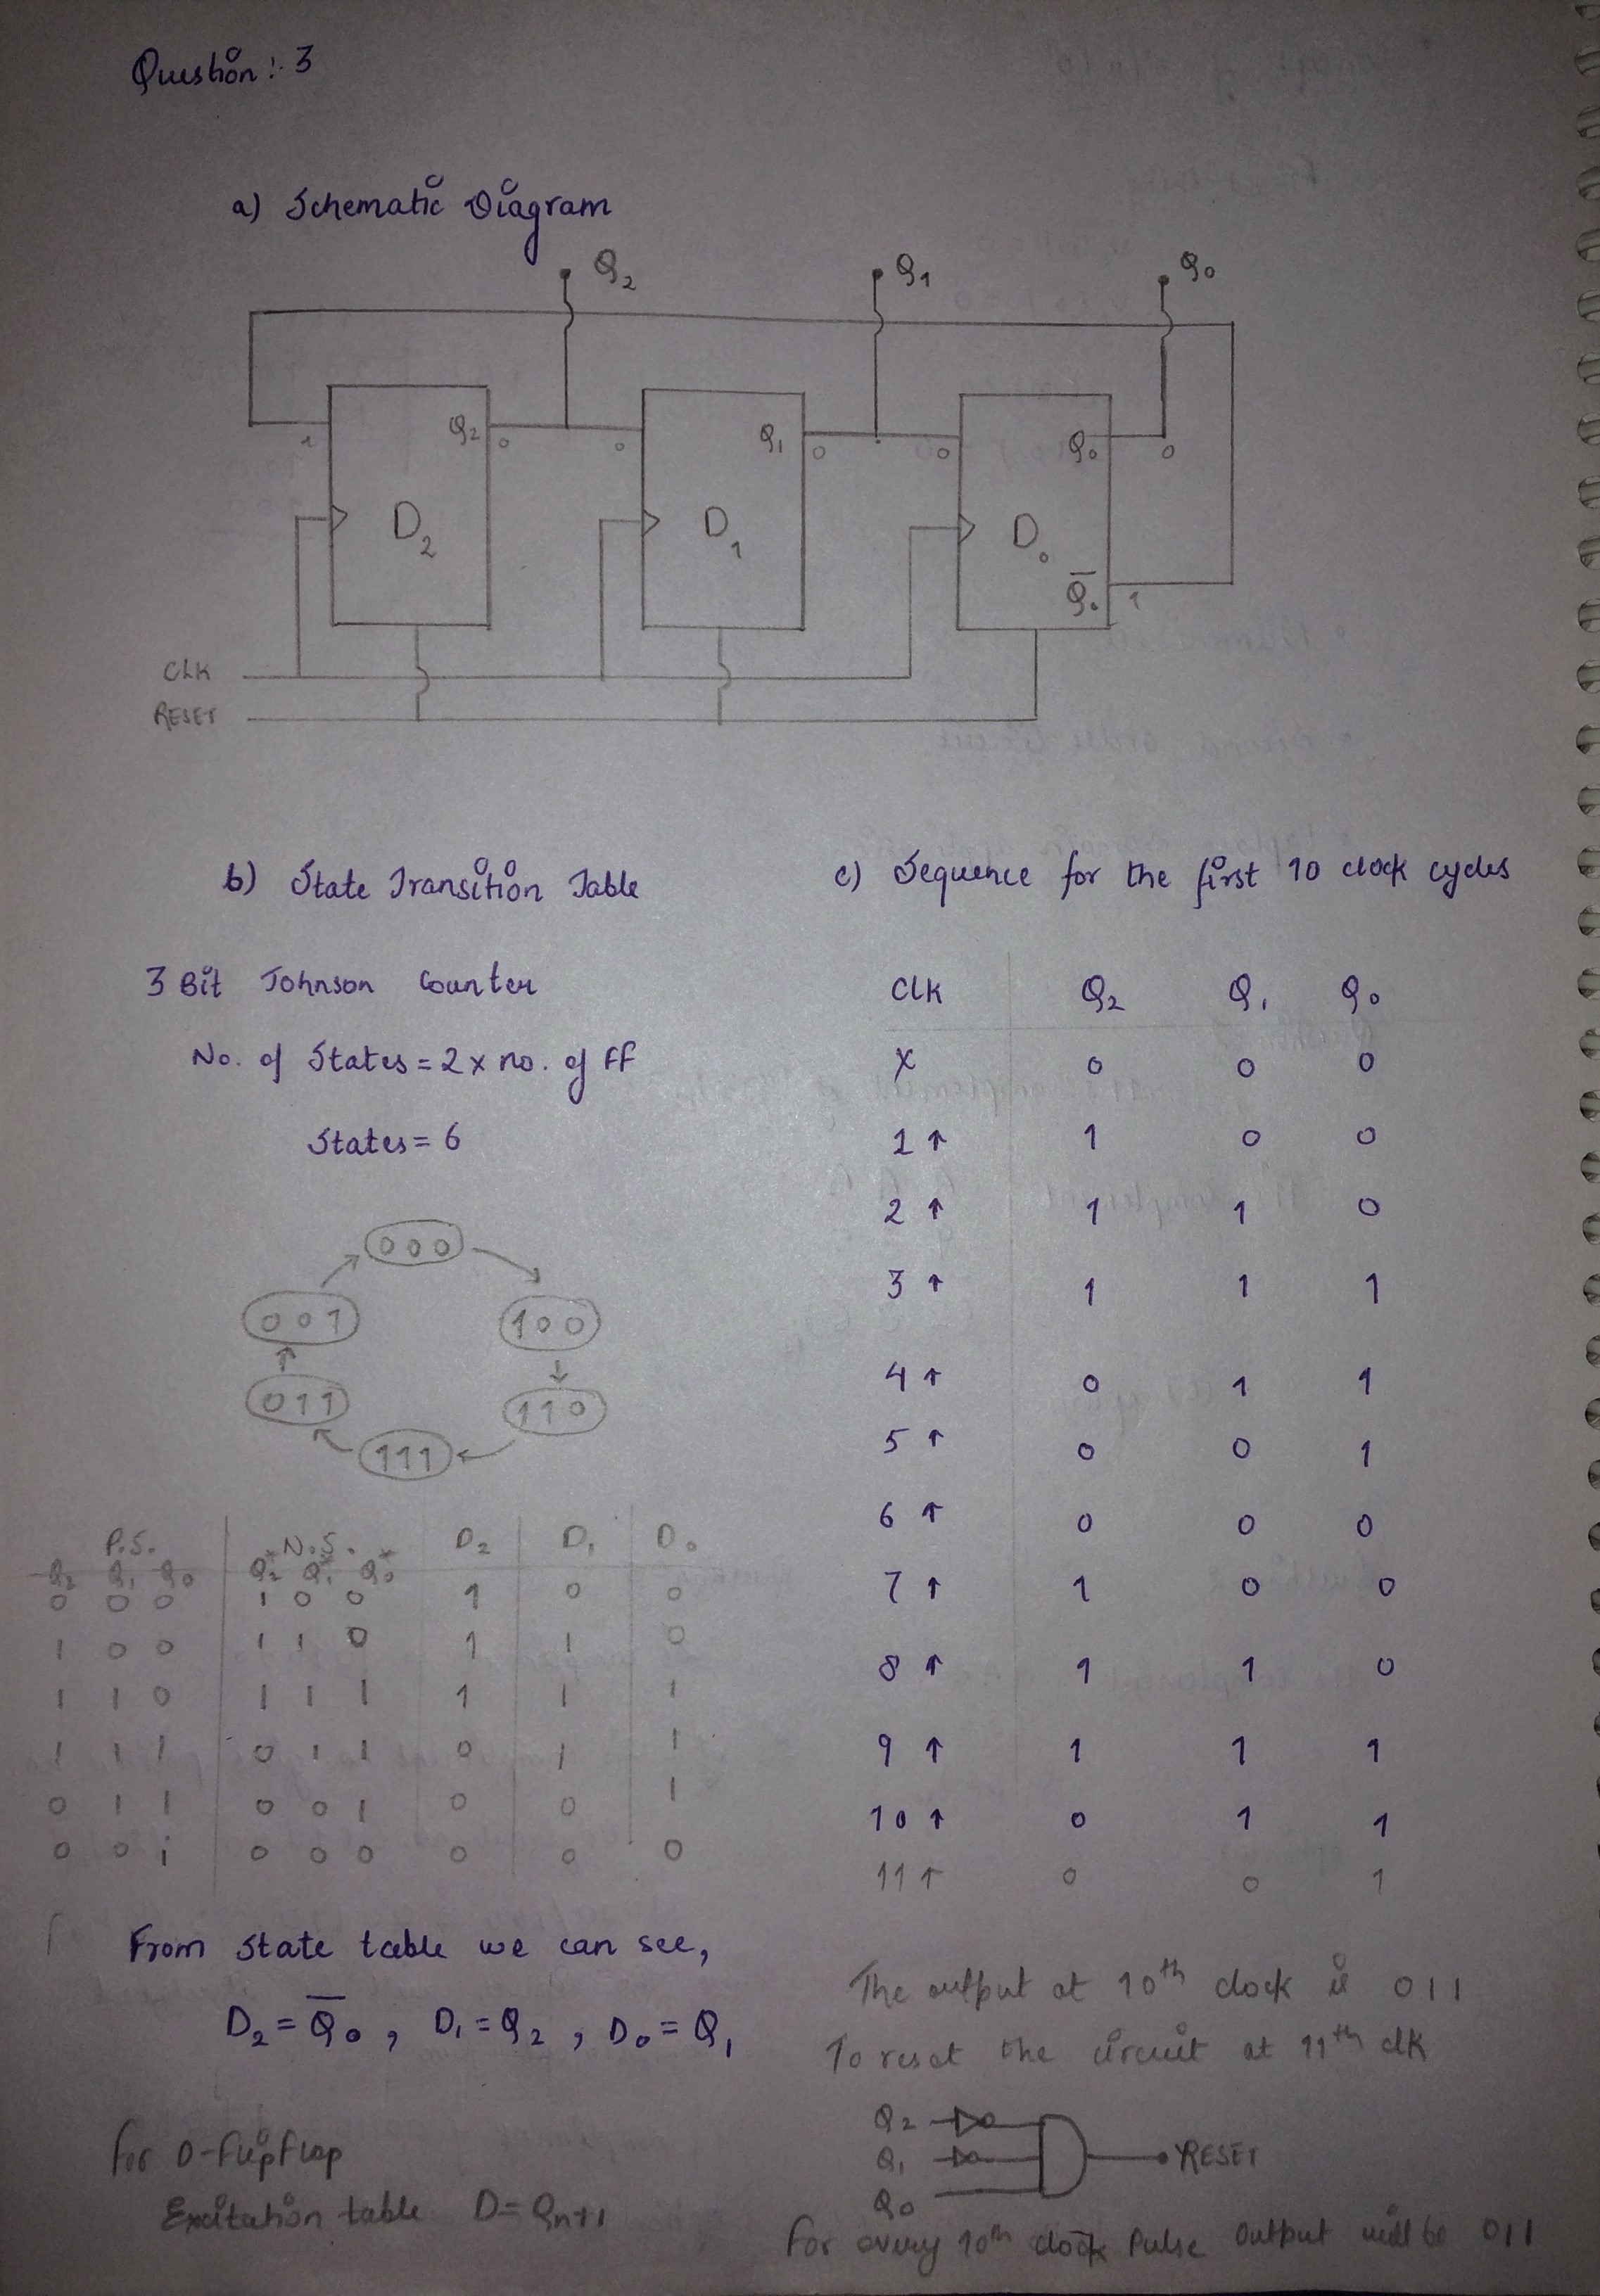 Question: 3
a) Schematic Diagram
Q2 Q1 Q0
1 Q2 0 0 Q1 0 0 Q0 0
D2 D1 D0
Q̅0 1
CLK
RESET
b) State Transition Table
3 Bit Johnson Counter
No. of States = 2 x no. of FF
States = 6
000
001 100
011 110
111
P.S. N.S. D2 D1 D0
Q2 Q1 Q0 Q2* Q1* Q0*
0 0 0 1 0 0 1 0 0
1 0 0 1 1 0 1 1 0
1 1 0 1 1 1 1 1 1
1 1 1 0 1 1 0 1 1
0 1 1 0 0 1 0 0 1
0 0 1 0 0 0 0 0 0
From state table we can see,
D2 = Q̅0, D1 = Q2, D0 = Q1
for D-flipflop
Excitation table D = Qn+1
c) Sequence for the first 10 clock cycles
CLK Q2 Q1 Q0
X 0 0 0
1 ↑ 1 0 0
2 ↑ 1 1 0
3 ↑ 1 1 1
4 ↑ 0 1 1
5 ↑ 0 0 1
6 ↑ 0 0 0
7 ↑ 1 0 0
8 ↑ 1 1 0
9 ↑ 1 1 1
10 ↑ 0 1 1
11 ↑ 0 0 1
The output at 10th clock is 011
To reset the circuit at 11th clk
Q2
Q1 RESET
Q0
for every 10th clock Pulse Output will be 011